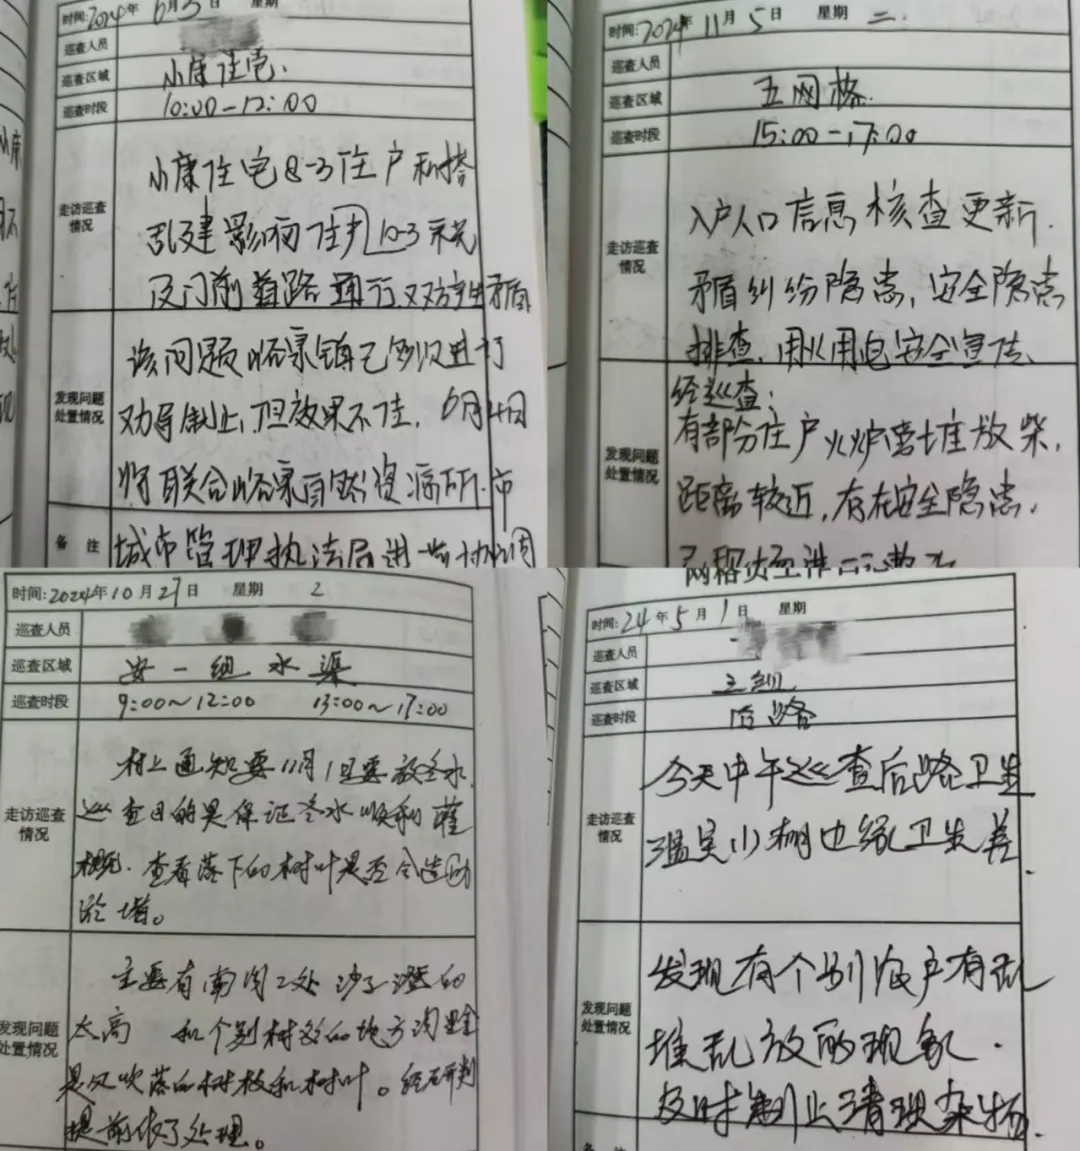 时间:2024年 6月3日 星期
巡查人员
巡查区域 小康住宅.
巡查时段 10:00-12:00
走访巡查情况
小康住宅8-3住户私搭
乱建影响住户10-3采光
及门前道路通行,双方产生矛盾
发现问题处置情况
该问题临泉镇已多次进行
劝导制止,但效果不佳.6月4日
将联合临泉自然资源所.市
备 注 城市管理执法局进一步协调
时间:2024年11月5日 星期 二.
巡查人员
巡查区域 五网格.
巡查时段 15:00-17:00
走访巡查情况
入户人口信息核查更新.
矛盾纠纷隐患,安全隐患
排查.用火用电安全宣传.
发现问题处置情况
经巡查:
有部分住户火炉旁堆放柴,
距离较近,存在安全隐患,
网格员
时间:2024年10月27日 星期 2
巡查人员
巡查区域 安一组水渠
巡查时段 9:00~12:00 13:00~17:00
走访巡查情况
村上通知要11月1日要放冬水
巡查目的是保证冬水顺利灌
概. 查看落下的树叶是否会造成
淤堵。
发现问题处置情况
主要有南沟2处沙子淤的
太高 和个别树多的地方沟里全
是风吹落的树枝和树叶。经研判
提前做了处理。
时间:24年5月1日 星期
巡查人员
巡查区域 三组
巡查时段 后路
走访巡查情况
今天中午巡查后路卫生
温室小棚边缘卫生差.
发现问题处置情况
发现有个别农户有乱
堆乱放的现象.
及时制止清理杂物.
备 注